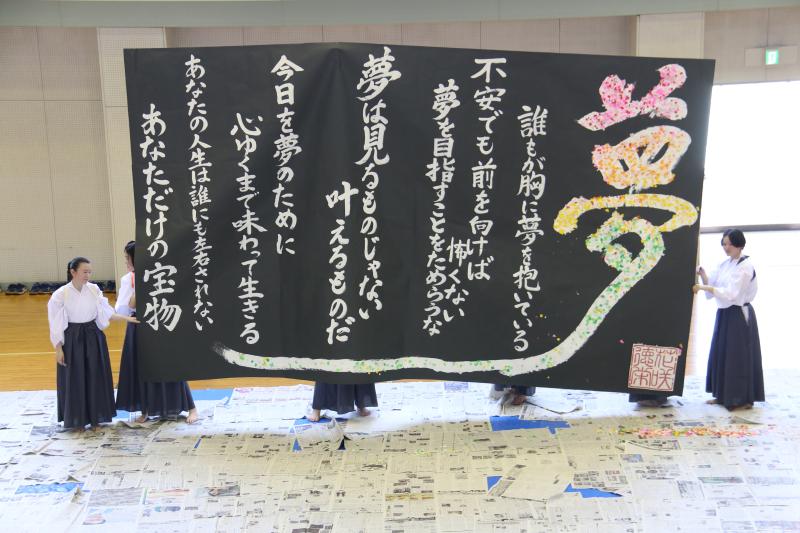 夢
誰もが胸に夢を抱いている
不安でも前を向けば
怖くない
夢を目指すことをためらうな
夢は見るものじゃない
叶えるものだ
今日を夢のために
心ゆくまで味わって生きる
あなたの人生は誰にも左右されない
あなただけの宝物
花咲
徳栄